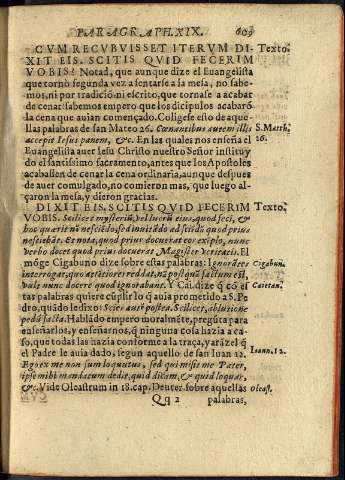 PARAGRAPH. XIX. 609
CVM RECVBVISSET ITERVM DI- Texto.
XIT EIS. SCITIS QVID FECERIM
VOBIS? Notad, que aunque dize el Euangelista
que tornò segunda vez a sentarse a la mesa, no sabe-
mos, ni por tradiciõ ni escrito, que tornase a acabar
de cenar: sabemos empero que los dicipulos acabarõ
la cena que auian començado. Coligese esto de aque-
llas palabras de san Mateo 26. Cœnantibus autem illis S. Matth.
accepit Iesus panem, &c. En las quales nos enseña el 26.
Euangelista auer Iesu Christo nuestro Señor institui-
do el santissimo sacramento, antes que los Apostoles
acabassen de cenar la cena ordinaria, aunque despues
de auer comulgado, no comieron mas, que luego al-
çaron la mesa, y dieron gracias.
DIXIT EIS. SCITIS QVID FECERIM Texto.
VOBIS. Scilicet mysteriũ, vel lucrũ eius, quod feci, &
hoc quærit nũ nesciẽdo sed inuitãdo ad sciẽdũ quod prius
nesciebãt. & nota, quod prius docuerat exẽplo, nunc
verbo docet quod prius docuerat Magister veritatis. El
mõge Cigabuno dize sobre estas palabras: Ignorãtes Cigabun.
interrogat, quo attẽtiores reddat, nã postquã factum est,
vult nunc docere quod ignorabant. Y Cai. dize q̃ cõ es Caietan.
tas palabras quiere cũplir lo q̃ auia prometido a S. Pe
dro, quãdo le dixo: Scies autẽ postea. Scilicet, ablutione
pedũ facta. Hablãdo empero moralmẽte, pregũta para
enseñarlos, y enseñarnos, q̃ ninguna cosa hazia a ca-
so, que todas las hazia conforme a la traça, y arãzel q̃
el Padre le auia dado, segun aquello de san Iuan 12. Ioann. 12.
Ego ex me non sum loquutus, sed qui misit me Pater,
ipse mihi mandatum dedit, quid dicam, & quid loquar,
&c. Vide Oleastrum in 18. cap. Deuter sobre aquellas Oleast.
Qq 2 palabras,